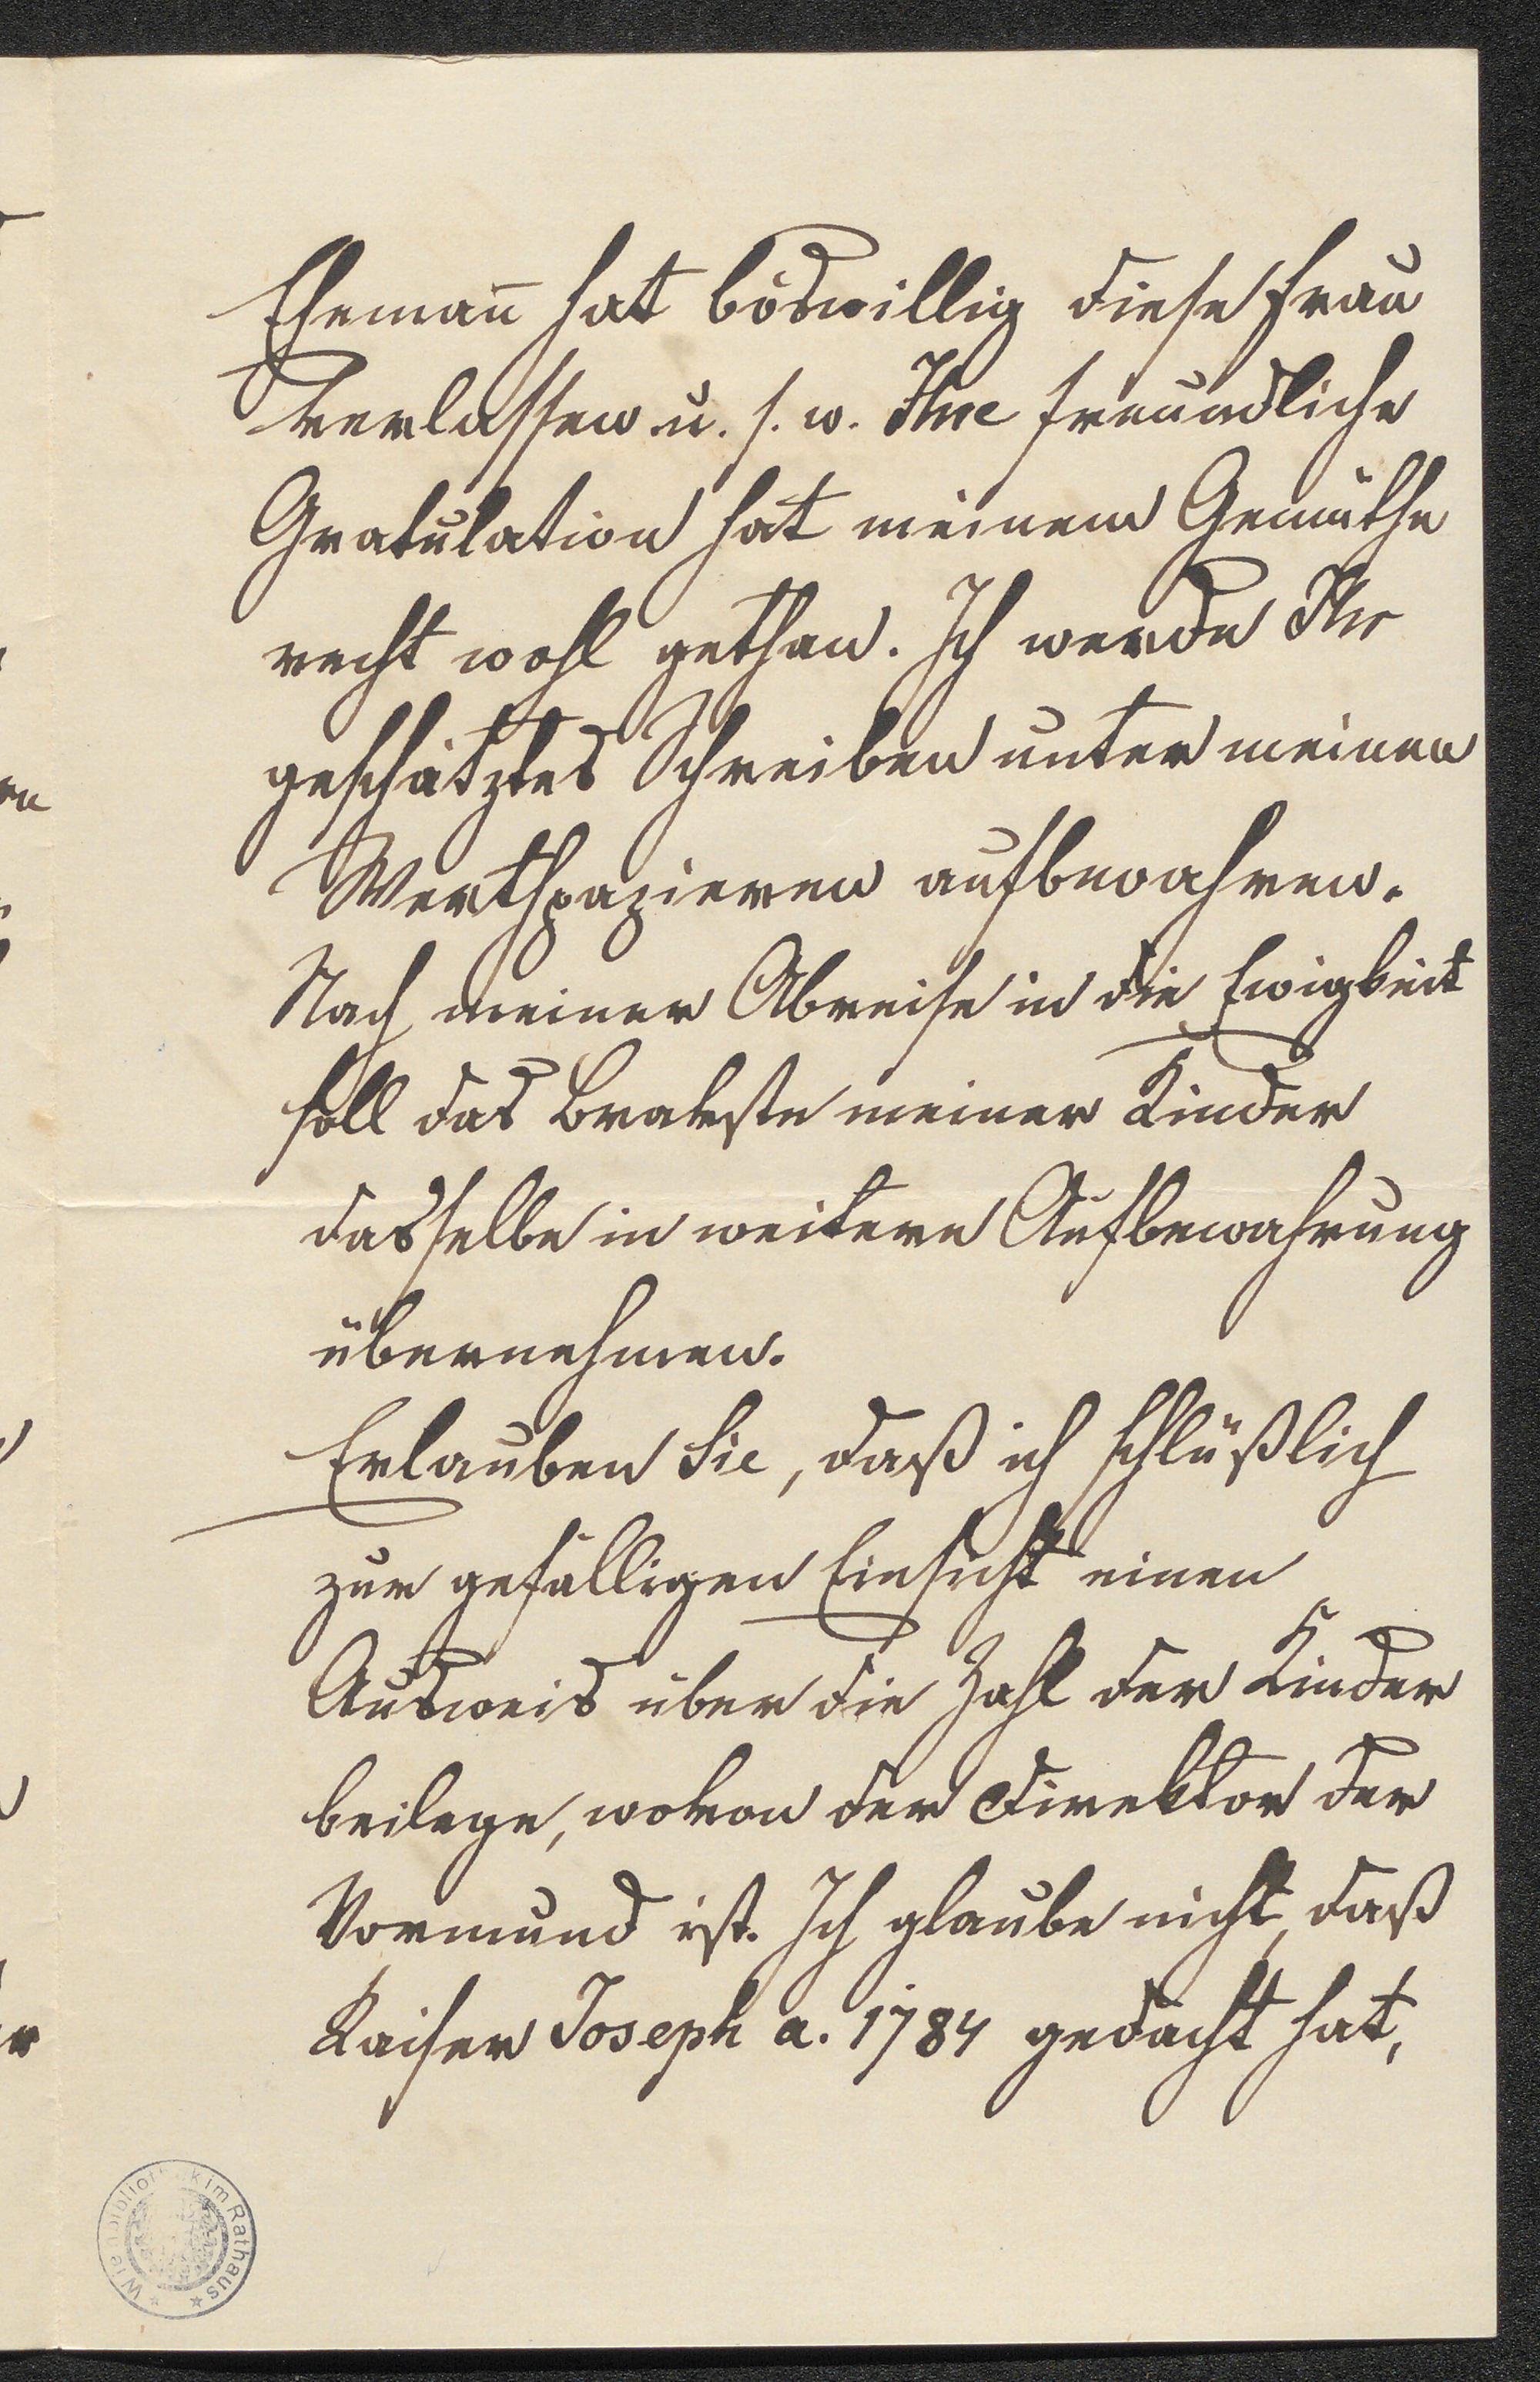 Ehemañ hat böswillig diese Frau
verlassen u. s. w. Ihre freundliche
Gratulation hat meinem Gemüthe
recht wohl gethan. Ich werde Ihr
geschätztes Schreiben unter meinen
Werthpapieren aufbewahren.
Nach meiner Abreise in die Ewigkeit
soll das Bravste meiner Kinder
dasselbe in weitere Aufbewahrung
übernehmen.
Erlauben Sie, daß ich schlüßlich
zur gefälligen Einsicht einen
Ausweis über die Zahl der Kinder
beilege, wovon der Direktor der
Vormund ist. Ich glaube nicht, daß
Kaiser Joseph a. 1784 gedacht hat,
Wienbibliothek im Rathaus